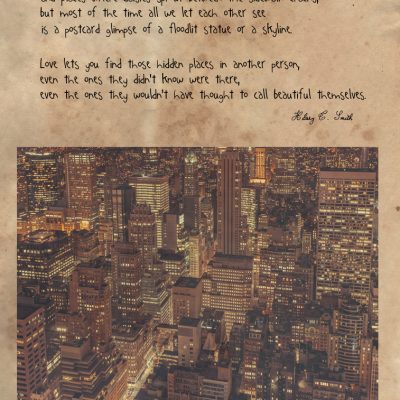 but most of the time all we let each other see
is a postcard glimpse of a floodlit statue or a skyline.
Love lets you find those hidden places in another person,
even the ones they didn't know were there,
even the ones they wouldn't have thought to call beautiful themselves.
Hilary C. Smith